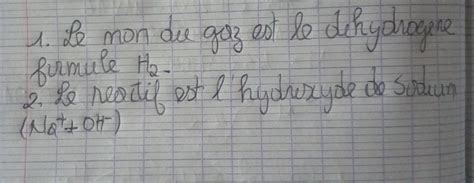 1. Le mon du gaz est le dihydrogène
furmule H2-
2. Le réactif est l'hydroxyde de sodium
(Na⁺+OH⁻)